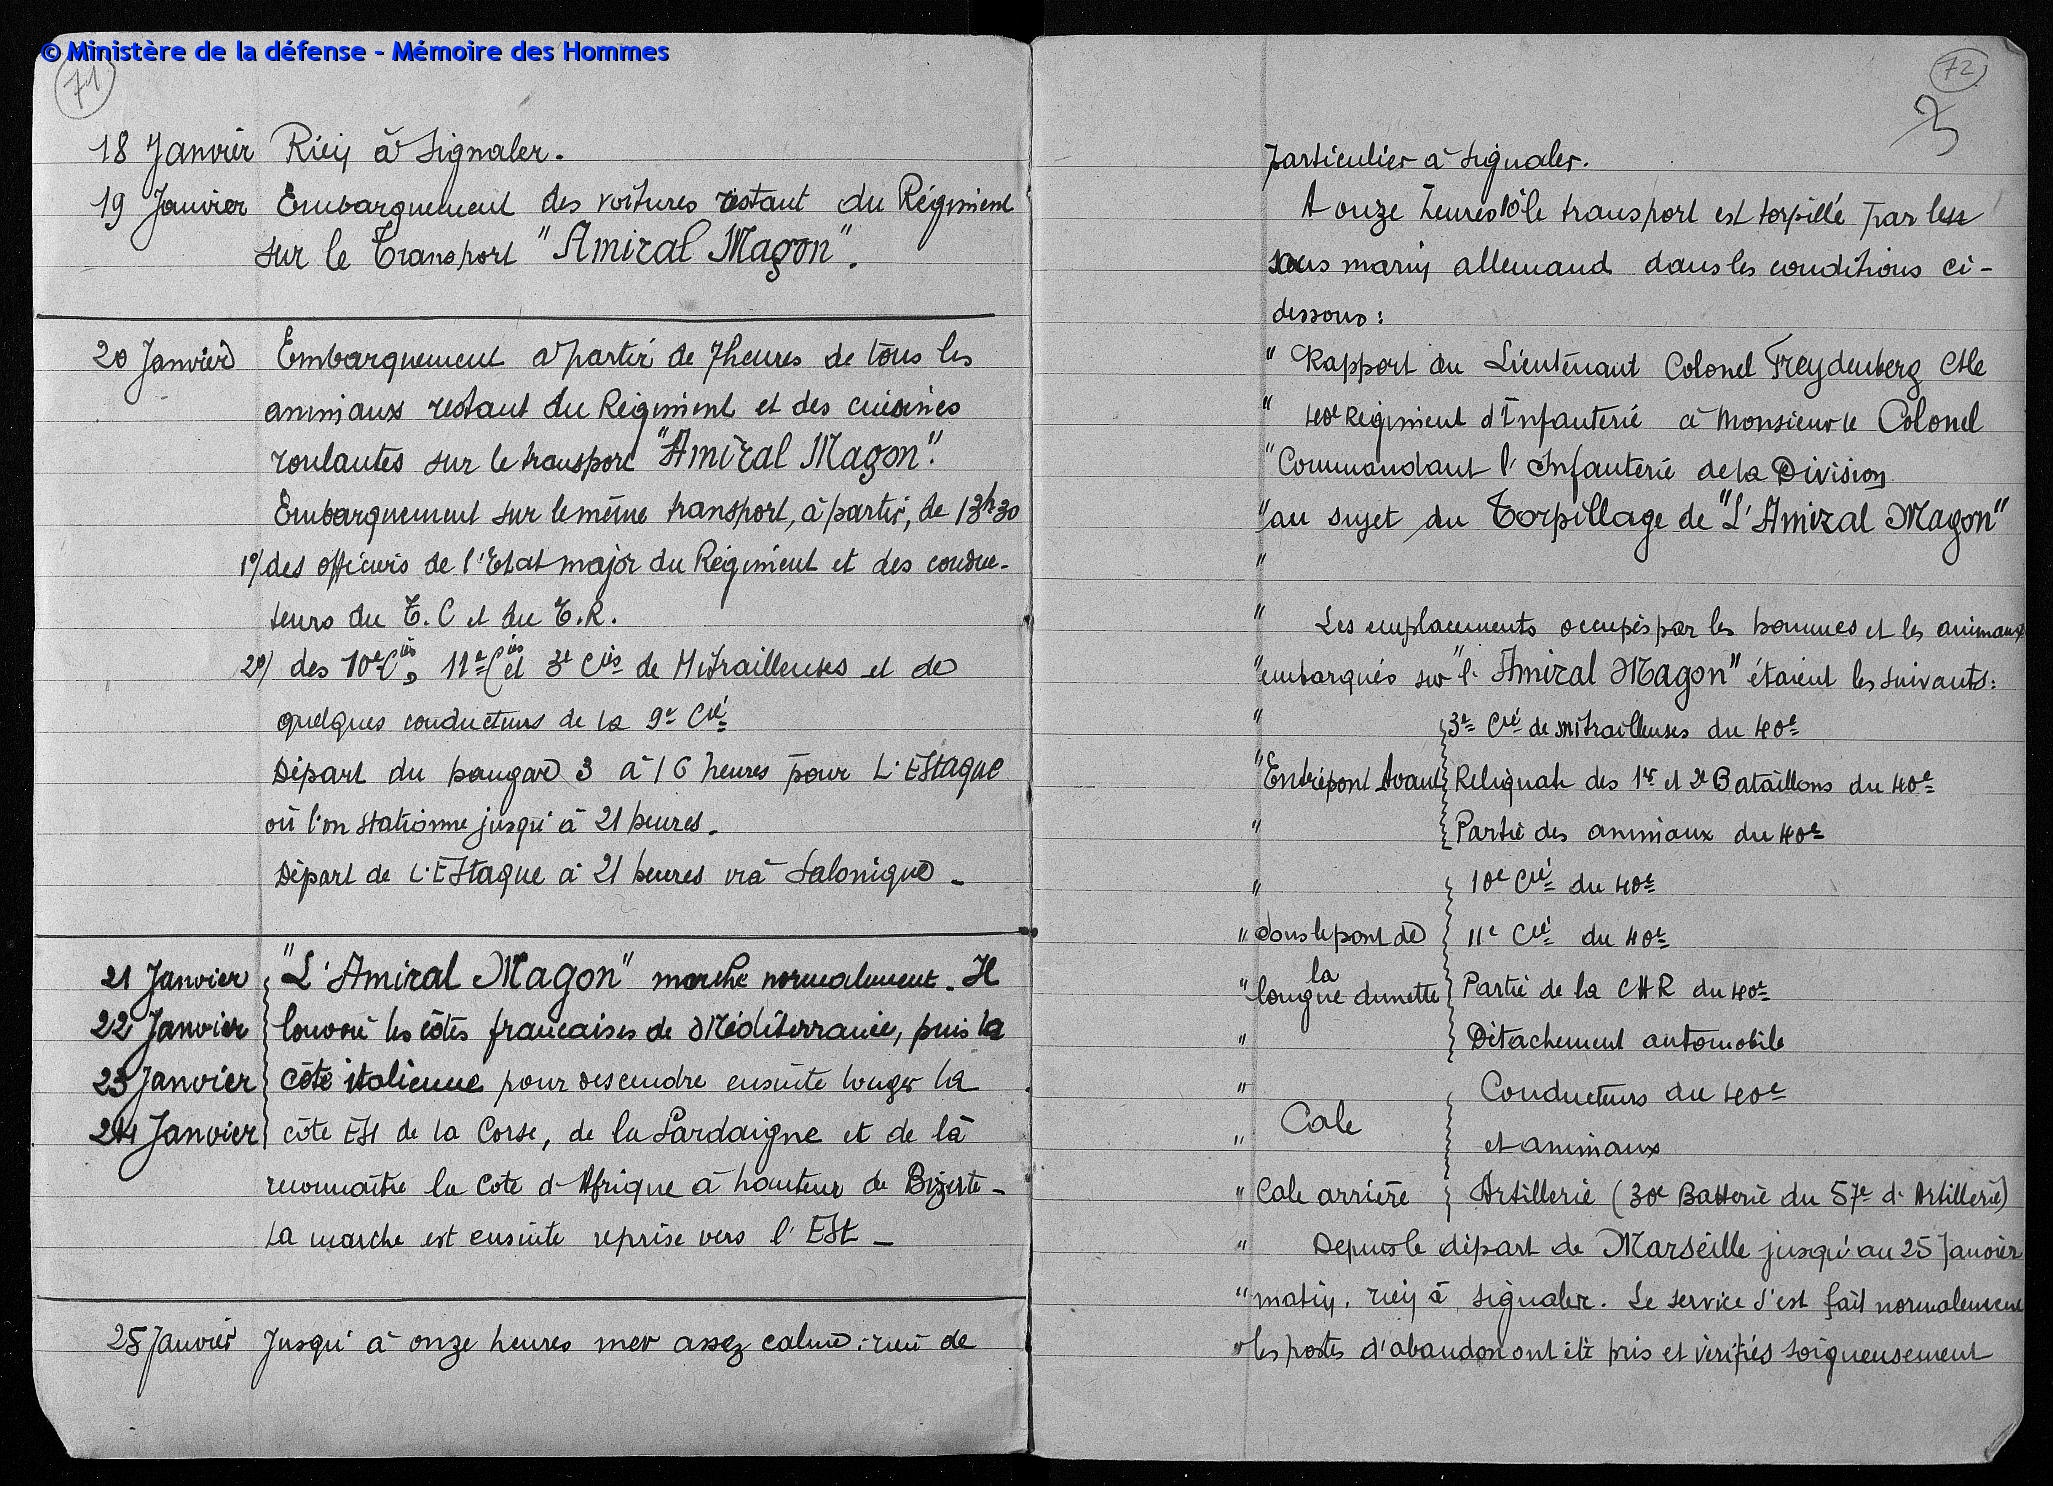 © Ministère de la défense - Mémoire des Hommes
71
18 Janvier Rien à signaler.
19 Janvier Embarquement des voitures restant du Régiment
sur le Transport "Amiral Magon".
20 Janvier Embarquement à partir de 7 heures de tous les
animaux restant du Régiment et des cuisines
roulantes sur le transport "Amiral Magon".
Embarquement sur le même transport, à partir, de 13h30
1º/ des officiers de l'Etat major du Régiment et des conduc-
teurs du T.C et du T.R.
2º/ des 10e Cies, 11e Cies et 3e Cies de Mitrailleuses et de
quelques conducteurs de la 9e Cie
Départ du hangar 3 à 16 heures pour L'EStaque
où l'on stationne jusqu'à 21 heures.
Départ de L'EStaque à 21 heures vià Salonique -
21 Janvier "L'Amiral Magon" marche normalement. Il
22 Janvier louvoie les côtes francaises de Méditerranée, puis la
23 Janvier côte italienne pour descendre ensuite longer la
24 Janvier côte ESt de la Corse, de la Sardaigne et de là
reconnaître la Côte d'Afrique à hauteur de Bizerte -
La marche est ensuite reprise vers l'ESt -
25 Janvier Jusqu'à onze heures mer assez calme : rien de
72
particulier à signaler.
A onze heures 10 le transport est torpillé par
sous marin allemand dans les conditions ci-
dessous :
" Rapport du Lieutenant Colonel Freydenberg Cdt le
" 40e Régiment d'Infanterie à Monsieur le Colonel
" Commandant l'Infanterie de la Division
" au sujet du Torpillage de "L'Amiral Magon"
"
" Les emplacements occupés par les hommes et les animaux
" embarqués sur "l'Amiral Magon" étaient les suivants :
" 3e Cie de mitrailleuses du 40e
" Entrepont Avant Reliquats des 1er et 2e Bataillons du 40e
" Partie des animaux du 40e
" 10e Cie du 40e
" sous le pont de 11e Cie du 40e
" la longue dunette Partie de la CHR du 40e
" Détachement automobile
" Conducteurs du 40e
" Cale et animaux
" Cale arrière Artillerie (30e Batterie du 57e d'Artillerie)
" Depuis le départ de Marseille jusqu'au 25 Janvier
" matin, rien à signaler. Le service s'est fait normalement
" les postes d'abandon ont été pris et vérifiés soigneusement